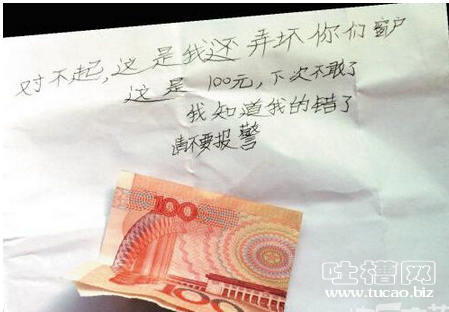 对不起,这是我还弄坏你们窗户
这是100元,下次不敢了
我知道我的错了
请不要报警
100
100
吐槽网
www.tucao.biz